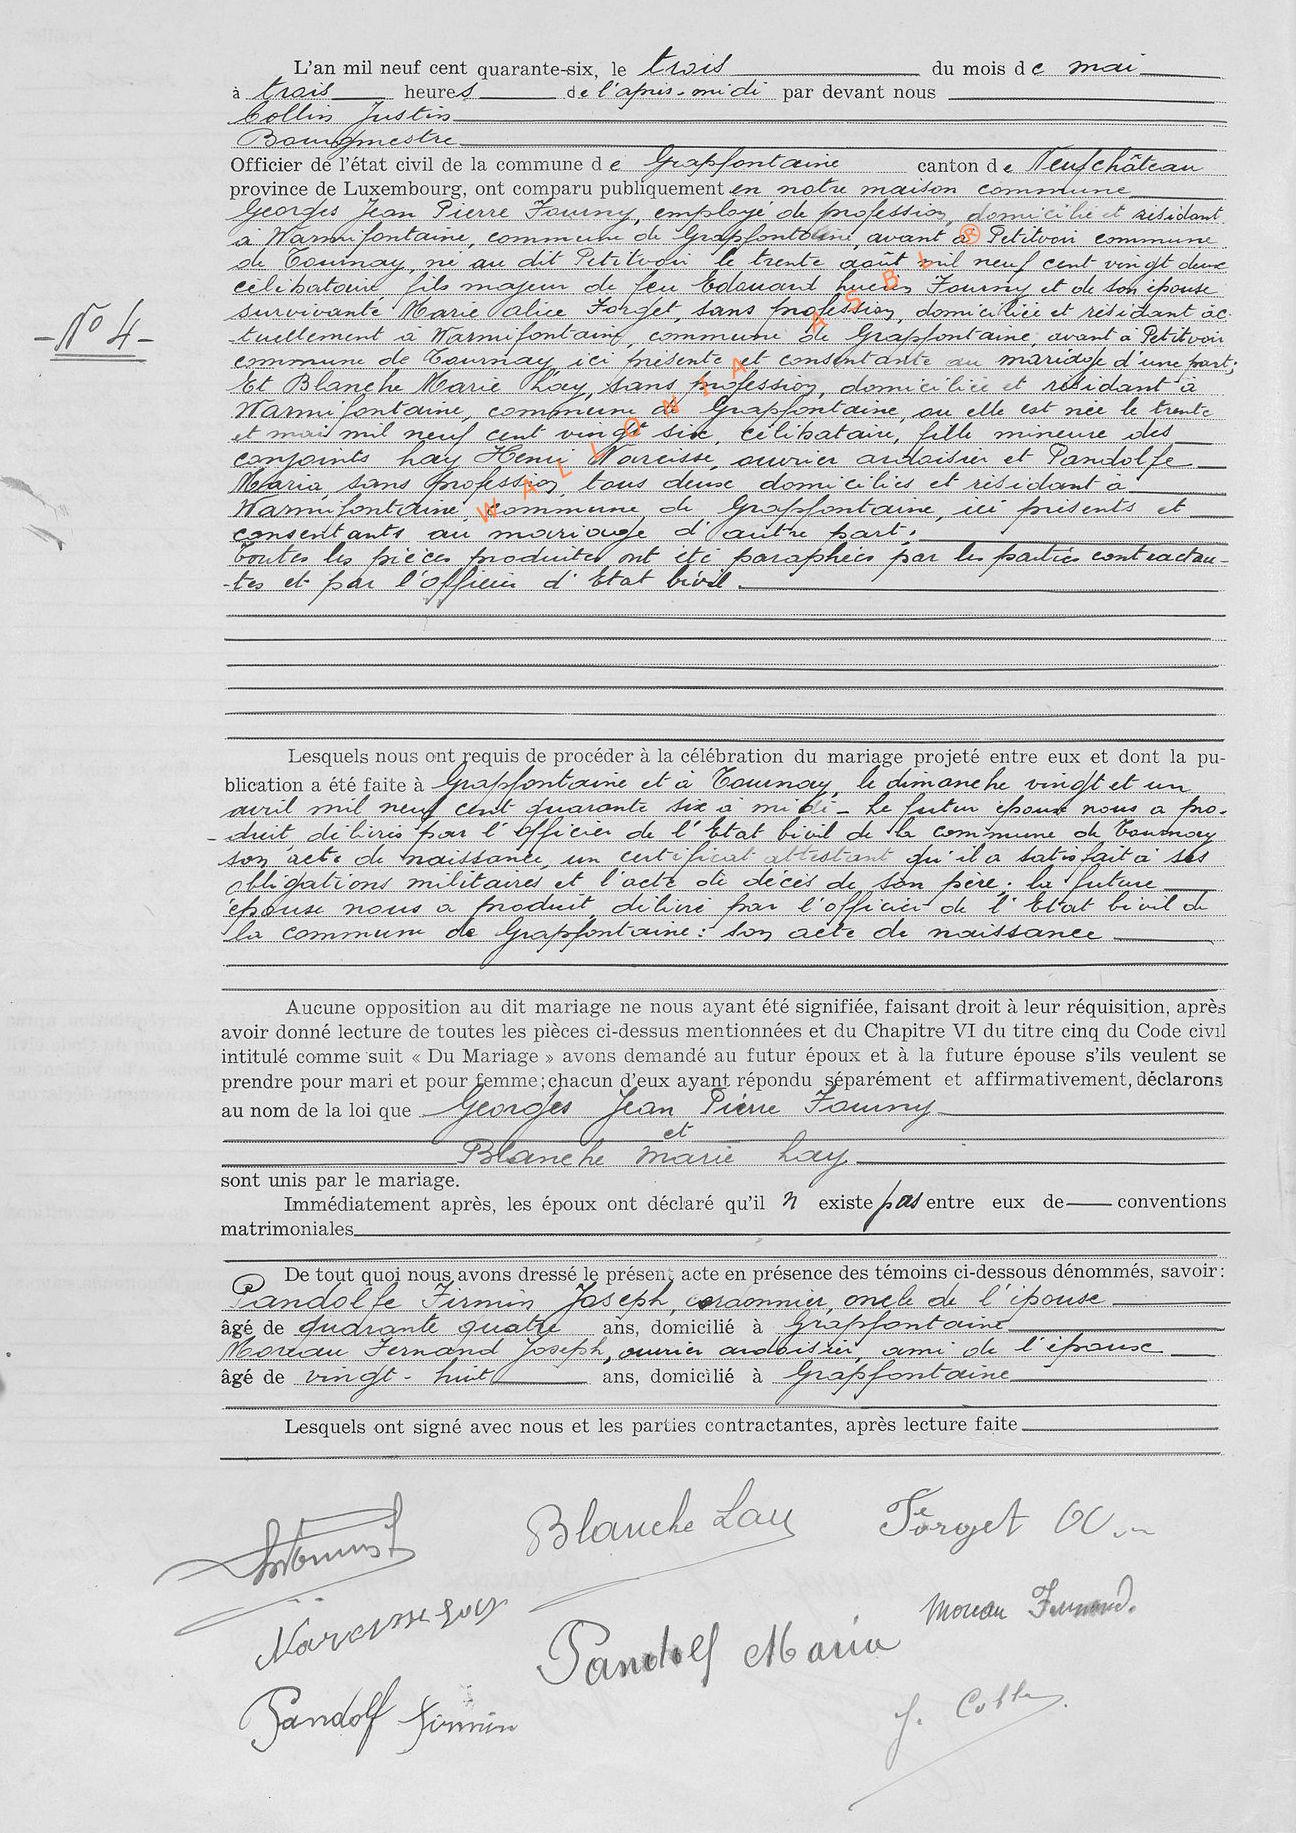 L'an mil neuf cent quarante-six, le trois du mois de mai
à trois heures de l'après-midi par devant nous
Collin Justin
Bourgmestre
Officier de l'état civil de la commune de Grapfontaine canton de Neufchâteau
province de Luxembourg, ont comparu publiquement en notre maison commune
Georges Jean Pierre Fourny, employé de profession, domicilié et résidant
à Warmifontaine, commune de Grapfontaine, avant à Petitvoir commune
de Tournay, né au dit Petitvoir le trente août mil neuf cent vingt deux
célibataire, fils majeur de feu Edouard Lucien Fourny et de son épouse
survivante Marie Alice Forget, sans profession, domiciliée et résidant ac
-tuellement à Warmifontaine, commune de Grapfontaine, avant à Petitvoir
commune de Tournay, ici présente et consentante au mariage d'une part;
- N° 4 -
Et Blanche Marie Lay, sans profession, domiciliée et résidant à
Warmifontaine, commune de Grapfontaine, où elle est née le trente
et mai mil neuf cent vingt six, célibataire, fille mineure des
conjoints Lay Henri Narcisse, ouvrier ardoisier et Pandolfe
Maria, sans profession, tous deux domiciliés et résidant à
Warmifontaine, commune de Grapfontaine, ici présents et
consentants au mariage d'autre part.
Toutes les pièces produites ont été paraphées par les parties contractan-
-tes et par l'Officier d'Etat Civil.
WALLONIA ASBL ®
Lesquels nous ont requis de procéder à la célébration du mariage projeté entre eux et dont la pu-
blication a été faite à Grapfontaine et à Tournay, le dimanche vingt et un
avril mil neuf cent quarante six à midi - Le futur époux nous a pro-
-duit, délivrés par l'Officier de l'Etat Civil de la commune de Tournay
son acte de naissance, un certificat attestant qu'il a satisfait à ses
obligations militaires et l'acte de décès de son père; la future
épouse nous a produit, délivré par l'officier de l'Etat Civil de
la commune de Grapfontaine: son acte de naissance
Aucune opposition au dit mariage ne nous ayant été signifiée, faisant droit à leur réquisition, après
avoir donné lecture de toutes les pièces ci-dessus mentionnées et du Chapitre VI du titre cinq du Code civil
intitulé comme suit « Du Mariage » avons demandé au futur époux et à la future épouse s'ils veulent se
prendre pour mari et pour femme; chacun d'eux ayant répondu séparément et affirmativement, déclarons
au nom de la loi que Georges Jean Pierre Fourny
et
Blanche Marie Lay
sont unis par le mariage.
Immédiatement après, les époux ont déclaré qu'il n existe pas entre eux de conventions
matrimoniales
De tout quoi nous avons dressé le présent acte en présence des témoins ci-dessous dénommés, savoir:
Pandolfe Firmin Joseph, cordonnier, oncle de l'épouse
âgé de quarante quatre ans, domicilié à Grapfontaine
Moreau Fernand Joseph, ouvrier ardoisier, ami de l'épouse
âgé de vingt-huit ans, domicilié à Grapfontaine
Lesquels ont signé avec nous et les parties contractantes, après lecture faite
Blanche Lay
Forget
Moreau Fernand.
Pandolf Maria
Pandolf Firmin